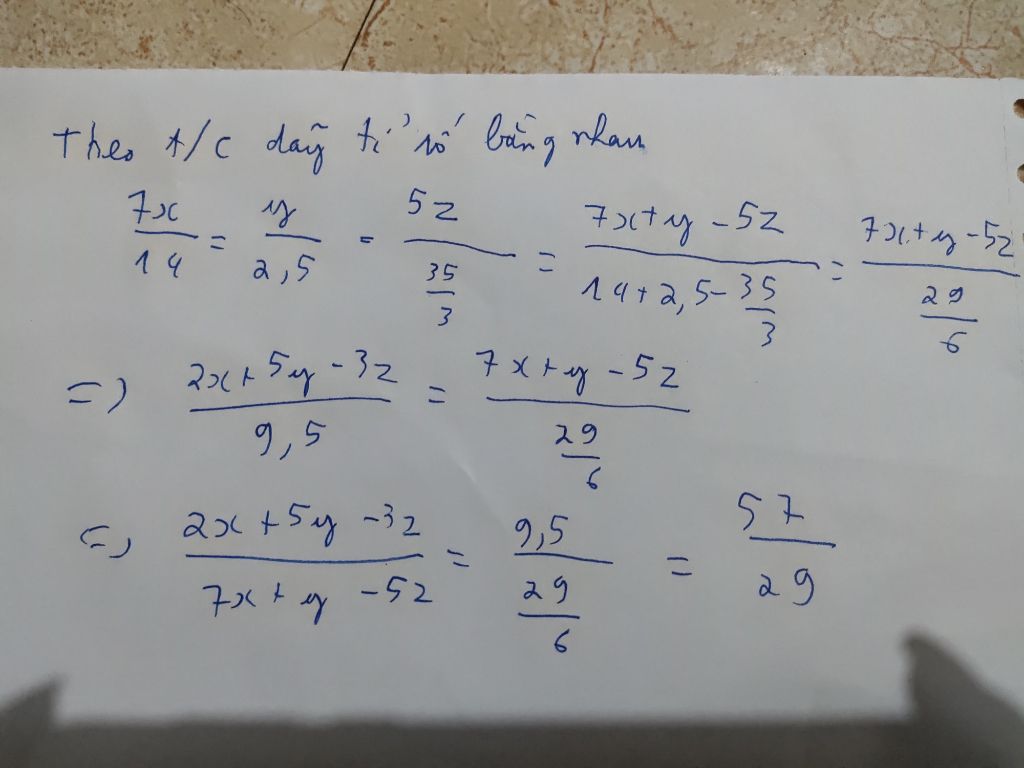 Theo t/c dãy tỉ số bằng nhau
7x/14 = y/2,5 = 5z/(35/3) = (7x+y-5z)/(14+2,5-35/3) = (7x+y-5z)/(29/6)
=) (2x+5y-3z)/9,5 = (7x+y-5z)/(29/6)
(=) (2x+5y-3z)/(7x+y-5z) = 9,5/(29/6) = 57/29